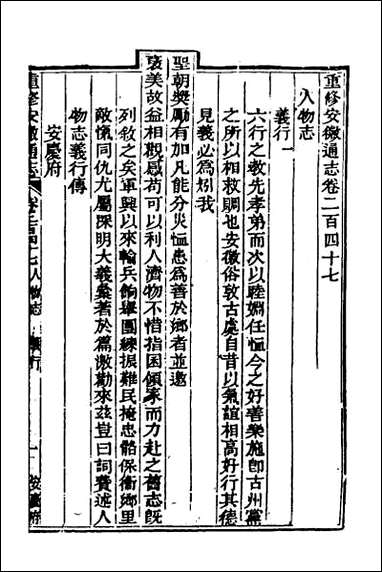 重修安徽通志卷二百四十七
人物志
義行一
六行之教先孝弟而次以睦婣任恤今之好善樂施卽古州黨
之所以相救賙也安徽俗敦古處自昔以氣誼相高好行其德
見義必爲矧我
聖朝獎勵有加凡能分災恤患爲善於鄉者並邀
襃美故益相觀感苟可以利人濟物不惜指囷傾家而力赴之舊志旣
列敘之矣軍興以來輸兵餉舉團練振難民掩忠骼保衞鄉里
敵愾同仇尤屬深明大義彙著於篇激勸來茲豈曰詞費述人
物志義行傳
安慶府
重修安徽通志
卷二百四十七人物志
義行一
一
安慶府